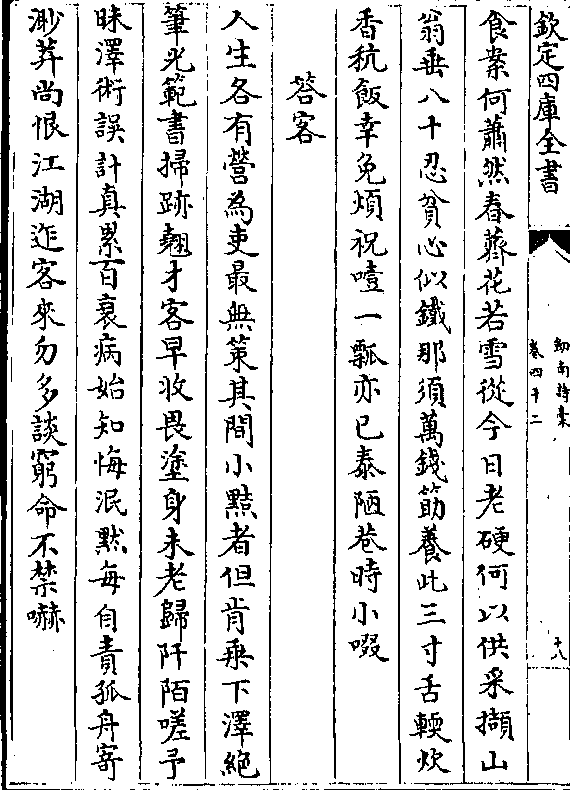 欽定四庫全書
劍南詩稾
卷四十二
十八
食案何蕭然春薺花若雪從今日老硬何以供采擷山
翁垂八十忍貧心似鐵那須萬錢筯養此三寸舌輭炊
香秔飯幸免煩祝噎一瓢亦已泰陋巷時小啜
答客
人生各有營為吏最無策其間小黠者但肯乗下澤絶
筆光範書掃跡翹才客早收畏塗身未老歸阡陌嗟予
昧澤術誤計真累百衰病始知悔泯黙每自責孤舟寄
渺莽尚恨江湖迮客來勿多談窮命不禁嚇